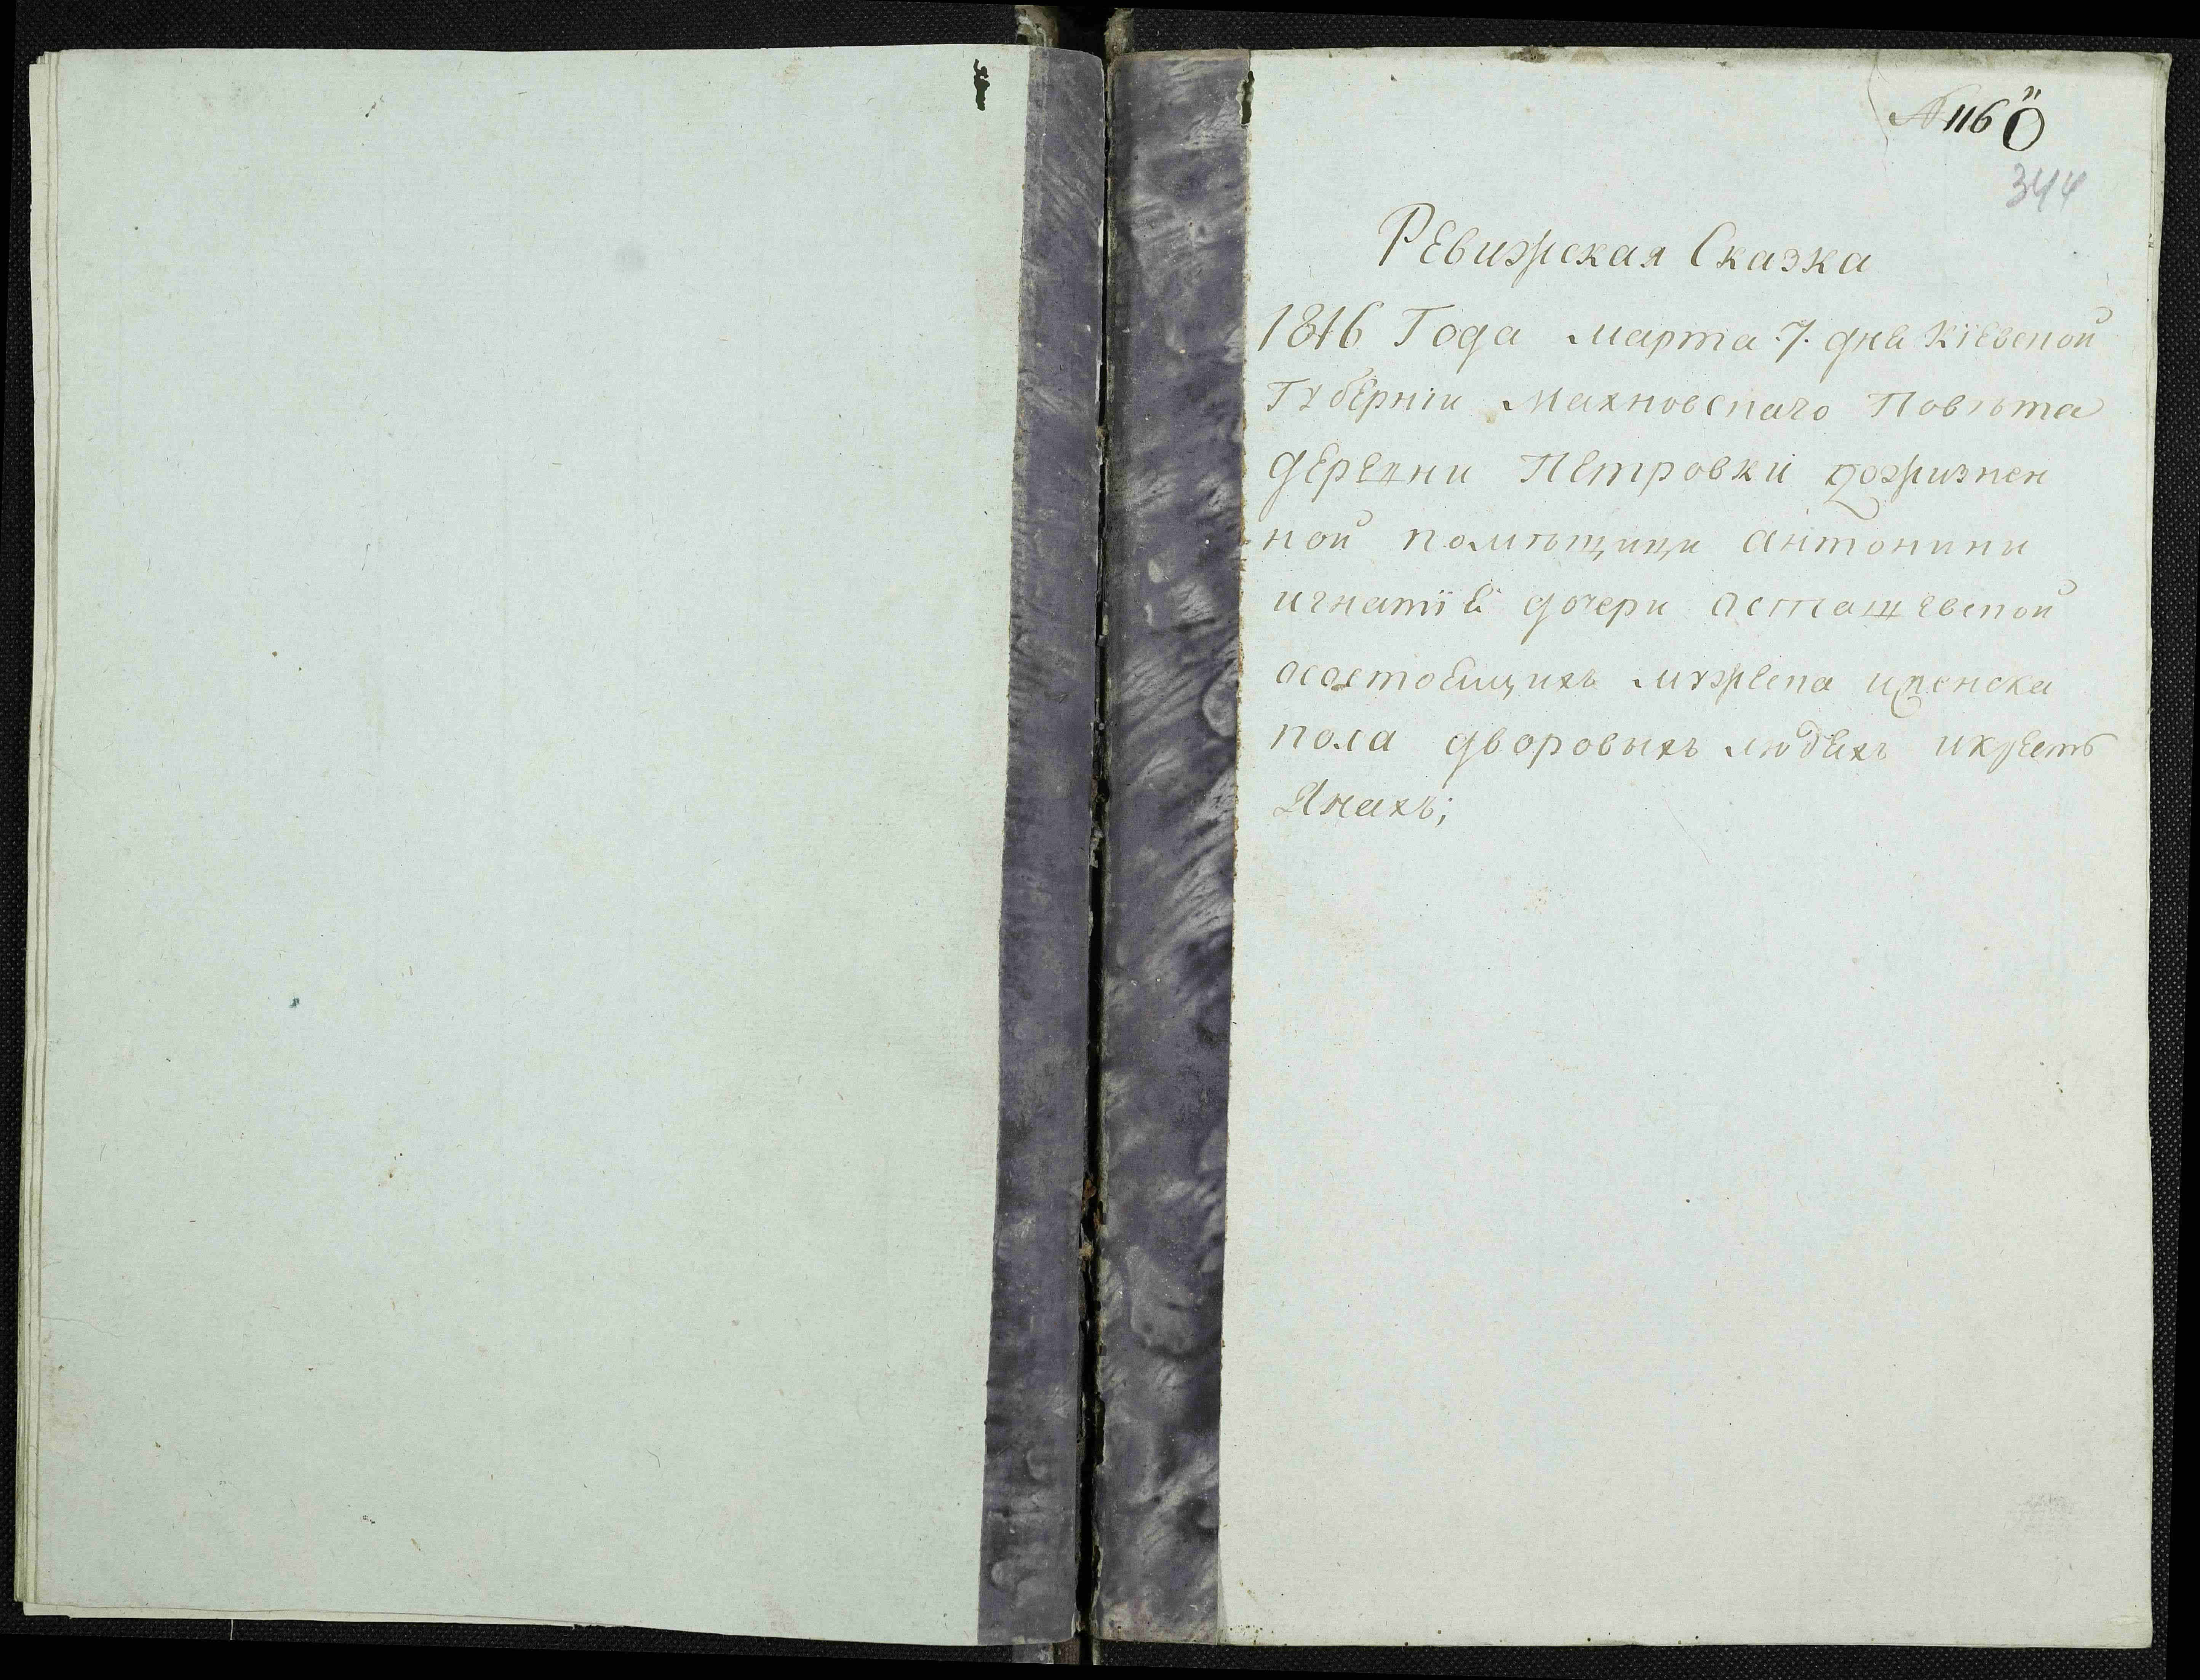 № 116
344
Ревижская Сказка
1816 Года марта 7. дня Кіевской
Губерніи Махновскаго Повѣта
деревни Петровки дожизнен
ной помѣщици антонини
игнатіей дочери
осостоящихъ мужеска иженска
пола дворовыхъ людехъ икресть
Янахъ;